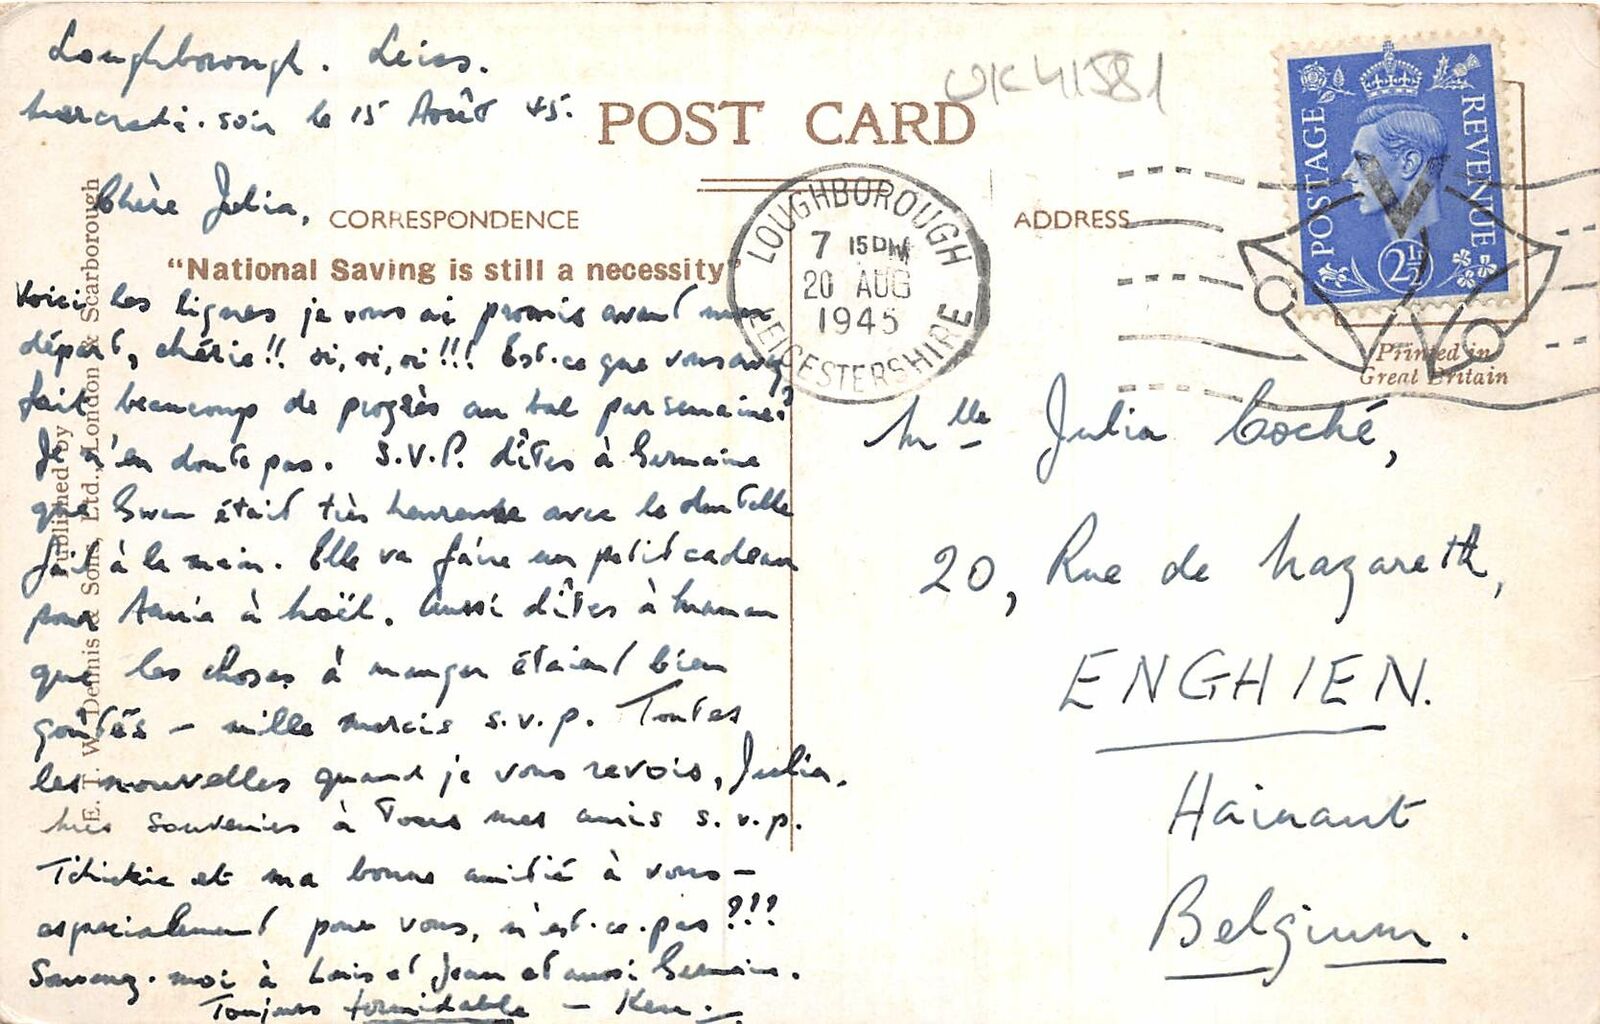 Loughborough. Leics.
mercredi. soir le 15 Août 45.
POST CARD
UK41581
Chère Julia,
CORRESPONDENCE
ADDRESS
"National Saving is still a necessity"
Voici les lignes je vous ai promis avant mon
départ, chérie!! oi, oi, oi!!! Est-ce que vous avez
fait beaucoup de progrès au bal par semaine?
Je n'en doute pas. S.V.P. dîtes à Germaine
que Gwen était très heureuse avec le dentelle
fait à la main. Elle va faire un petit cadeau
pour Annie à Noël. Aussi dîtes à maman
que les choses à manger étaient bien
goûtés – mille mercis s.v.p. Toutes
les nouvelles quand je vous revois, Julia.
Mes souvenirs à Tous mes amis s.v.p.
et ma bonne amitié à vous –
especialement pour vous, n'est-ce-pas???
-moi à Louis et Jean et aussi Germaine.
Toujours formidable – Ken.
Published by
E. T. W. Dennis & Sons, Ltd. London & Scarborough
LOUGHBOROUGH
7 15 PM
20 AUG
1945
LEICESTERSHIRE
POSTAGE
REVENUE
2½
V
Printed in
Great Britain
Mlle Julia Coché,
20, Rue de Nazareth,
ENGHIEN.
Hainaut
Belgium.